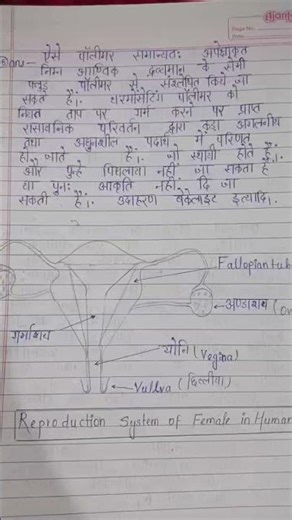 Ajanta
Page No.
Date
ans- ऐसे पॉलीमर सामान्यतः अपेक्षाकृत
निम्न आण्विक द्रव्यमान के सभी
फ्लूइड पॉलीमर से संश्लेषित किये जा
सकते हैं।. थरमोसेटिंग पॉलीमर को
नियत ताप पर गर्म करने पर प्राप्त
रासायनिक परिवर्तन द्वारा कड़ा अगलनीय
तथा अघुलशील पदार्थ में परिणत
हो जाते हैं।. जो स्थायी होते हैं।.
और पुन्हे पिघलाया नहीं जा सकता है
या पुनः आकृति नहीं दि जा
सकती है।. उदाहरण बैकेलाइट इत्यादि।.
Fallopian tub
अण्डाशय (Ov
गर्भाशय
योनि (Vegina)
Vullva (छिल्लीया)
Reproduction System of Female in Human